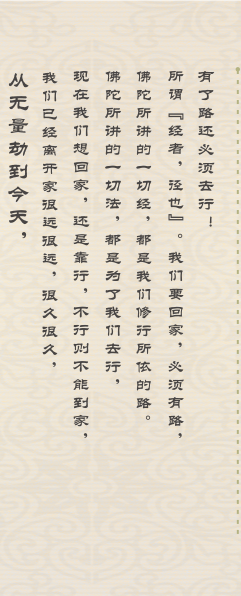 有了路还必须去行！
所谓『经者，径也』。我们要回家，必须有路，
佛陀所讲的一切经，都是我们修行所依的路。
佛陀所讲的一切法，都是为了我们去行，
现在我们想回家，还是靠行，不行则不能到家，
我们已经离开家很远很远，很久很久，
从无量劫到今天，